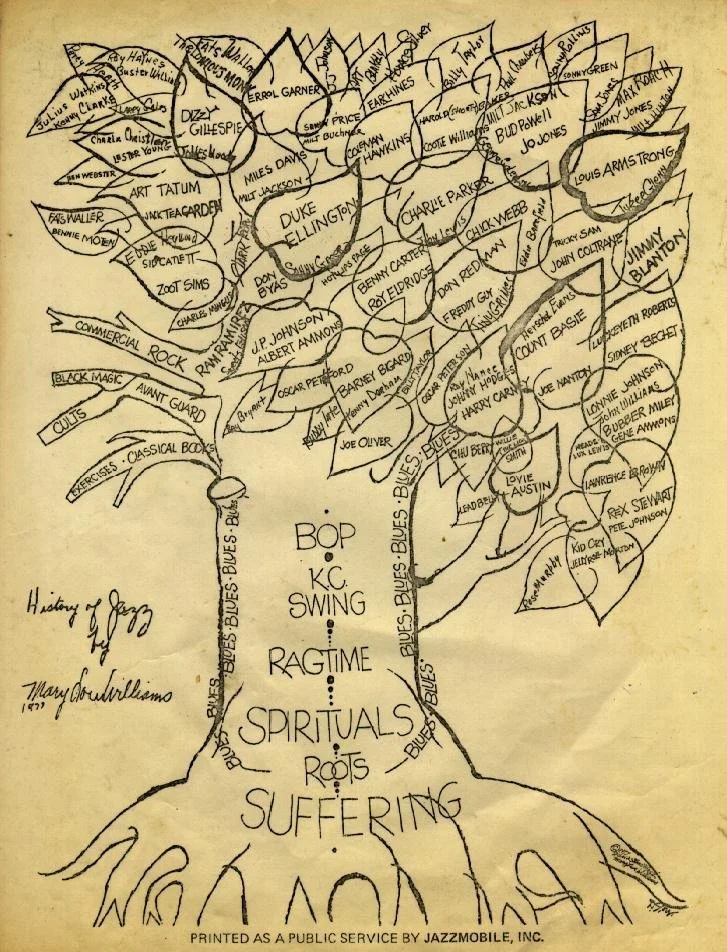 Fats Waller
THELONIOUS MONK
Roy Haynes
Buster Williams
Horace Silver
Billy Taylor
Sonny Rollins
SONNY GREEN
ERROL GARNER
EARL HINES
Julius Watkins
Kenny Clarke
DIZZY
GILLESPIE
James Moody
MILT BUCHNER
COLEMAN
HAWKINS
Cootie Williams
MILT JACKSON
BUD POWELL
JO JONES
Sam Jones
MAX ROACH
JIMMY JONES
Milt Hinton
Charlie Christian
LESTER YOUNG
BEN WEBSTER
MILES DAVIS
MILT JACKSON
LOUIS ARMSTRONG
ART TATUM
JACK TEAGARDEN
DUKE
ELLINGTON
Sonny Greer
CHARLIE PARKER
CHICK WEBB
FATS WALLER
BENNIE MOTEN
SID CATLETT
ZOOT SIMS
CHARLES MINGUS
DON
BYAS
HOT LIPS PAGE
BENNY CARTER
ROY ELDRIDGE
DON REDMAN
FREDDY GUY
TRICKY SAM
JOHN COLTRANE
JIMMY
BLANTON
RAM RAMIREZ
J.P. JOHNSON
ALBERT AMMONS
Herschel Evans
COUNT BASIE
LUCKEYETH ROBERTS
SIDNEY BECHET
COMMERCIAL ROCK
BLACK MAGIC AVANT GUARD
CULTS
EXERCISES · CLASSICAL BOOKS
Ray Bryant
OSCAR PETTIFORD
BARNEY BIGARD
Kenny Dorham
BILLY TAYLOR
OSCAR PETERSON
Ray Nance
JOHNNY HODGES
HARRY CARNEY
JOE NANTON
LONNIE JOHNSON
John Williams
BUBBER MILEY
GENE AMMONS
MEADE
LUX LEWIS
JOE OLIVER
CHU BERRY
WILLIE
SMITH
LOVIE
AUSTIN
LEADBELLY
LAWRENCE BROWN
REX STEWART
PETE JOHNSON
KID ORY
JELLYROLL MORTON
Rose Murphy
BLUES · BLUES · BLUES · BLUES · BLUES
BLUES · BLUES · BLUES · BLUES · BLUES · BLUES
BOP
K.C.
SWING
RAGTIME
SPIRITUALS
ROOTS
SUFFERING
History of Jazz
by
Mary Lou Williams
1977
PRINTED AS A PUBLIC SERVICE BY JAZZMOBILE, INC.